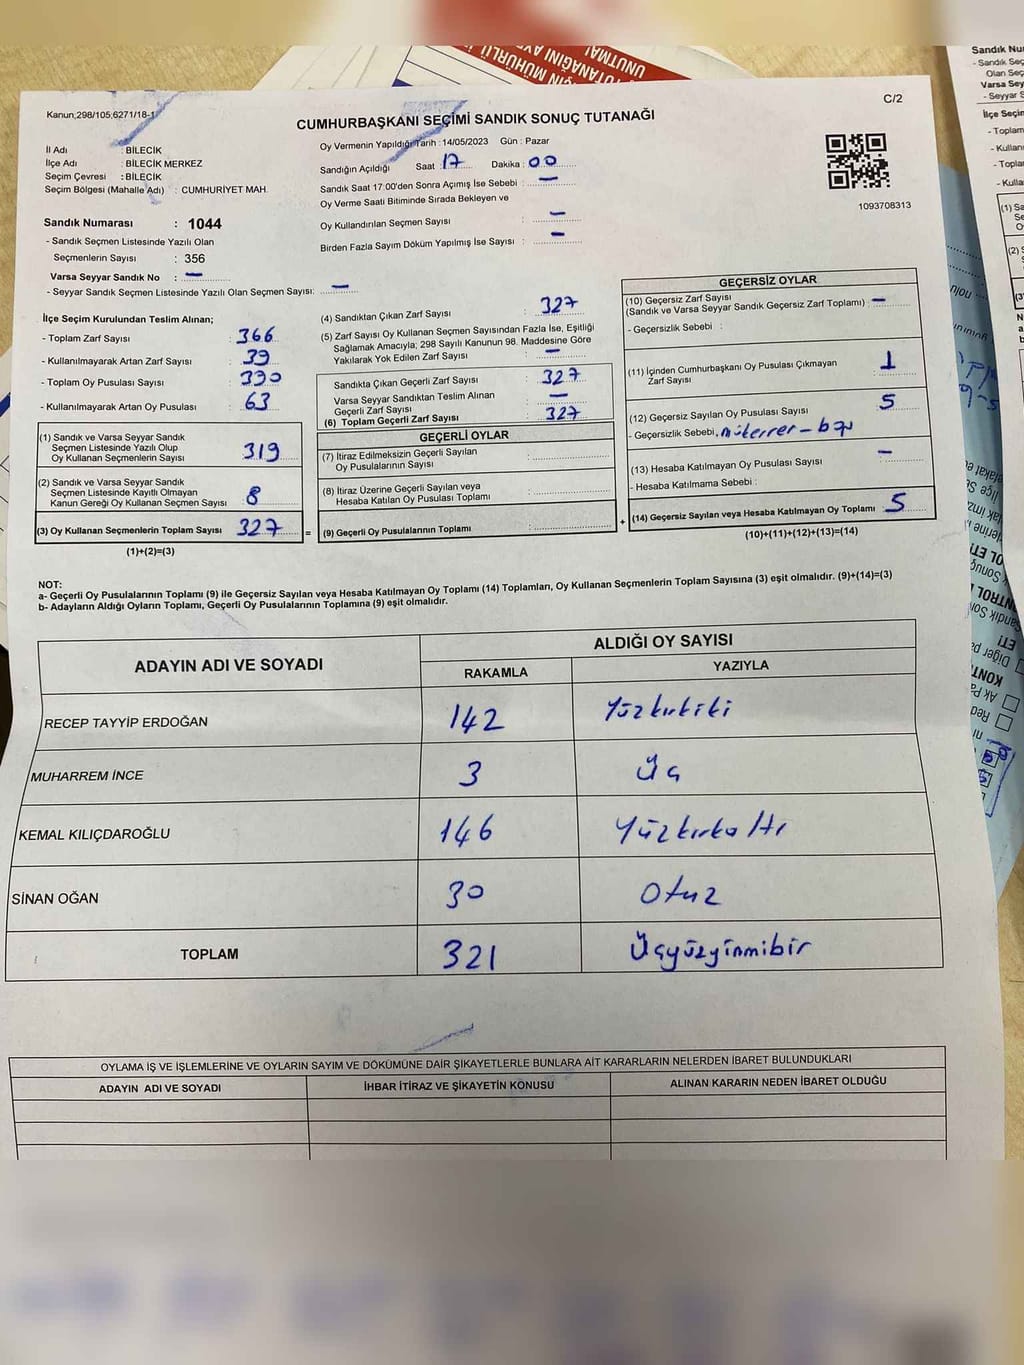 Kanun;298/105;6271/18-1
C/2
CUMHURBAŞKANI SEÇİMİ SANDIK SONUÇ TUTANAĞI
İl Adı : BİLECİK
İlçe Adı : BİLECİK MERKEZ
Seçim Çevresi : BİLECİK
Seçim Bölgesi (Mahalle Adı) : CUMHURİYET MAH.
Oy Vermenin Yapıldığı Tarih : 14/05/2023 Gün : Pazar
Sandığın Açıldığı Saat 17 Dakika : 00
Sandık Saat 17:00'den Sonra Açımış İse Sebebi : —
Oy Verme Saati Bitiminde Sırada Bekleyen ve
Oy Kullandırılan Seçmen Sayısı : —
Birden Fazla Sayım Döküm Yapılmış İse Sayısı : —
1093708313
Sandık Numarası : 1044
- Sandık Seçmen Listesinde Yazılı Olan
Seçmenlerin Sayısı : 356
Varsa Seyyar Sandık No : —
- Seyyar Sandık Seçmen Listesinde Yazılı Olan Seçmen Sayısı: —
İlçe Seçim Kurulundan Teslim Alınan;
- Toplam Zarf Sayısı : 366
- Kullanılmayarak Artan Zarf Sayısı : 39
- Toplam Oy Pusulası Sayısı : 390
- Kullanılmayarak Artan Oy Pusulası : 63
(1) Sandık ve Varsa Seyyar Sandık
Seçmen Listesinde Yazılı Olup
Oy Kullanan Seçmenlerin Sayısı : 319
(2) Sandık ve Varsa Seyyar Sandık
Seçmen Listesinde Kayıtlı Olmayan
Kanun Gereği Oy Kullanan Seçmen Sayısı : 8
(3) Oy Kullanan Seçmenlerin Toplam Sayısı : 327 =
(1)+(2)=(3)
(4) Sandıktan Çıkan Zarf Sayısı : 327
(5) Zarf Sayısı Oy Kullanan Seçmen Sayısından Fazla İse, Eşitliği
Sağlamak Amacıyla; 298 Sayılı Kanunun 98. Maddesine Göre
Yakılarak Yok Edilen Zarf Sayısı : —
Sandıkta Çıkan Geçerli Zarf Sayısı : 327
Varsa Seyyar Sandıktan Teslim Alınan
Geçerli Zarf Sayısı : —
(6) Toplam Geçerli Zarf Sayısı : 327
GEÇERLİ OYLAR
(7) İtiraz Edilmeksizin Geçerli Sayılan
Oy Pusulalarının Sayısı :
(8) İtiraz Üzerine Geçerli Sayılan veya
Hesaba Katılan Oy Pusulası Toplamı :
(9) Geçerli Oy Pusulalarının Toplamı : +
GEÇERSİZ OYLAR
(10) Geçersiz Zarf Sayısı
(Sandık ve Varsa Seyyar Sandık Geçersiz Zarf Toplamı) : —
- Geçersizlik Sebebi :
(11) İçinden Cumhurbaşkanı Oy Pusulası Çıkmayan
Zarf Sayısı : 1
(12) Geçersiz Sayılan Oy Pusulası Sayısı : 5
- Geçersizlik Sebebi, mükerrer –
(13) Hesaba Katılmayan Oy Pusulası Sayısı : —
- Hesaba Katılmama Sebebi :
(14) Geçersiz Sayılan veya Hesaba Katılmayan Oy Toplamı : 5
(10)+(11)+(12)+(13)=(14)
NOT:
a- Geçerli Oy Pusulalarının Toplamı (9) ile Geçersiz Sayılan veya Hesaba Katılmayan Oy Toplamı (14) Toplamları, Oy Kullanan Seçmenlerin Toplam Sayısına (3) eşit olmalıdır. (9)+(14)=(3)
b- Adayların Aldığı Oyların Toplamı, Geçerli Oy Pusulalarının Toplamına (9) eşit olmalıdır.
ADAYIN ADI VE SOYADI
ALDIĞI OY SAYISI
RAKAMLA YAZIYLA
RECEP TAYYİP ERDOĞAN 142 Yüzkırkiki
MUHARREM İNCE 3 Üç
KEMAL KILIÇDAROĞLU 146 Yüzkırkaltı
SİNAN OĞAN 30 Otuz
TOPLAM 321 Üçyüzyirmibir
OYLAMA İŞ VE İŞLEMLERİNE VE OYLARIN SAYIM VE DÖKÜMÜNE DAİR ŞİKAYETLERLE BUNLARA AİT KARARLARIN NELERDEN İBARET BULUNDUKLARI
ADAYIN ADI VE SOYADI İHBAR İTİRAZ VE ŞİKAYETİN KONUSU ALINAN KARARIN NEDEN İBARET OLDUĞU